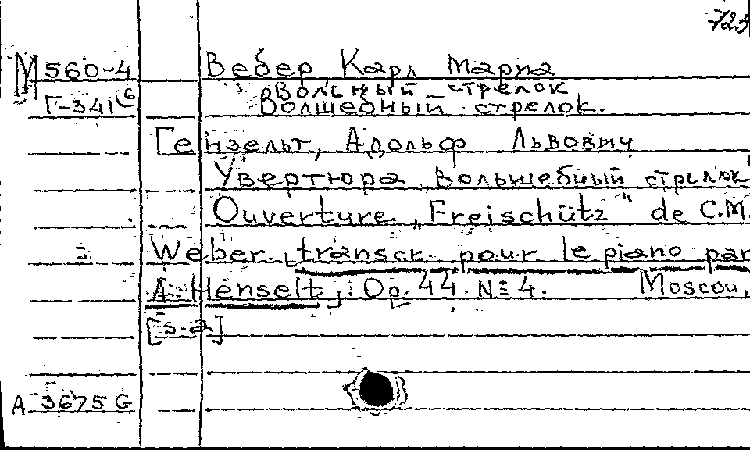 723
М 560-4 Вебер Карл Мария
Вольный стрелок
Г-341 Волшебный стрелок.
Гензельт, Адольф Львович
Увертюра „Волшебный стрелок"
Ouverture „Freischütz" de C.M.
Weber, transcr. pour le piano par
A. Henselt, Op. 44. №4. Moscou,
[s.a]
A 3675 G